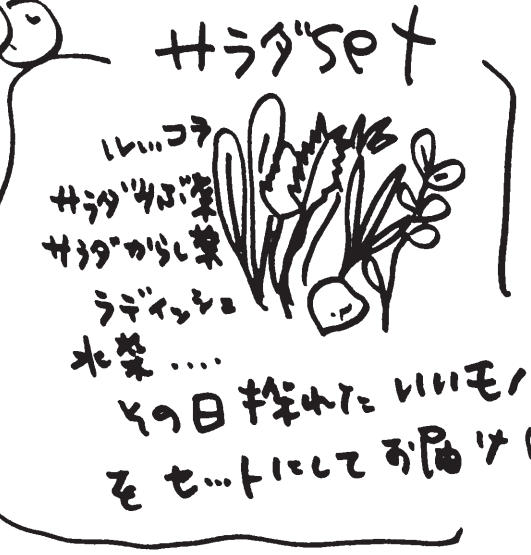 サラダset
ルッコラ
サラダわさび菜
サラダからし菜
ラディッシュ
水菜....
その日採れた いいモノ
をセットにしてお届け